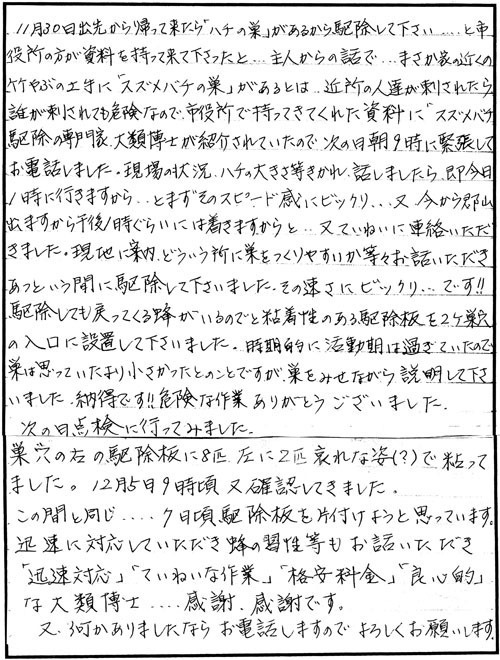 11月30日出先から帰って来たら「ハチの巣」があるから駆除して下さい....と市
役所の方が資料を持って来て下さったと...主人からの話で...まさか家の近くの
竹やぶの土手に「スズメバチの巣」があるとは..近所の人達が刺されたら
誰が刺されても危険なので市役所で持ってきてくれた資料に"スズメバチ
駆除の専門家、大類博士が紹介されていたので次の日朝9時に緊張して
お電話しました。現場の状況、ハチの大きさ等きかれ、話しましたら、即今日
1時に行きますから..とまずそのスピード感にビックリ...又、今から郡山
出ますから午後1時ぐらいには着きますからと..又ていねいに連絡いただ
きました。現地に案内、どういう所に巣をつくりやすいか等々お話いただき
あっという間に駆除して下さいました。その速さに、ビックリ...です!!
駆除しても戻ってくる蜂がいるのでと粘着性のある駆除板を2ヶ巣穴
の入口に設置して下さいました。時期的に活動期は過ぎていたので
巣は思っていたより小さかったとのことですが、巣をみせながら説明して下さ
いました。納得です!!危険な作業ありがとうございました。
次の日点検に行ってみました。
巣穴の右の駆除板に8匹 左に2匹哀れな姿(?)で粘って
ました。12月5日9時頃又確認してきました。
この間と同じ....7日頃駆除板を片付けようと思っています。
迅速に対応していただき蜂の習性等もお話いただき
「迅速対応」「ていねいな作業」「格安料金」「良心的」
な大類博士....感謝、感謝です。
又、何かありましたならお電話しますのでよろしくお願いします。